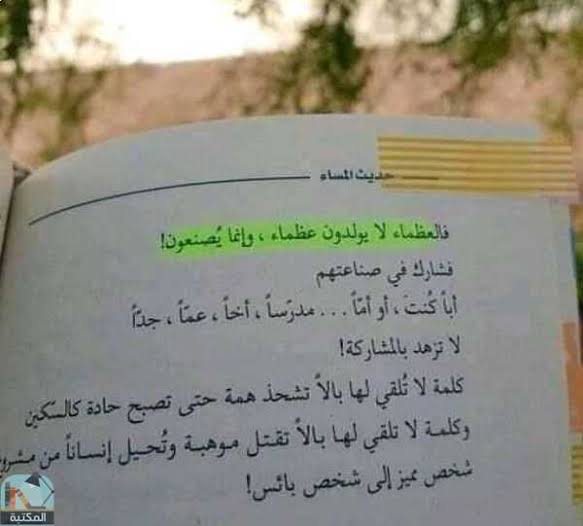 حديث المساء
فالعظماء لا يولدون عظماء ، وإنما يُصنعون!
فشارك في صناعتهم
أباً كُنتَ ، أو أمّاً ... مدرّساً ، أخاً ، عمّاً ، جدّاً
لا تزهد بالمشاركة!
كلمة لا تُلقي لها بالاً تشحذ همة حتى تصبح حادة كالسّكين
وكلمة لا تلقي لها بالاً تقتل موهبة وتُحيل إنساناً من مشرو
شخص مميز إلى شخص بائس!
المكتبة